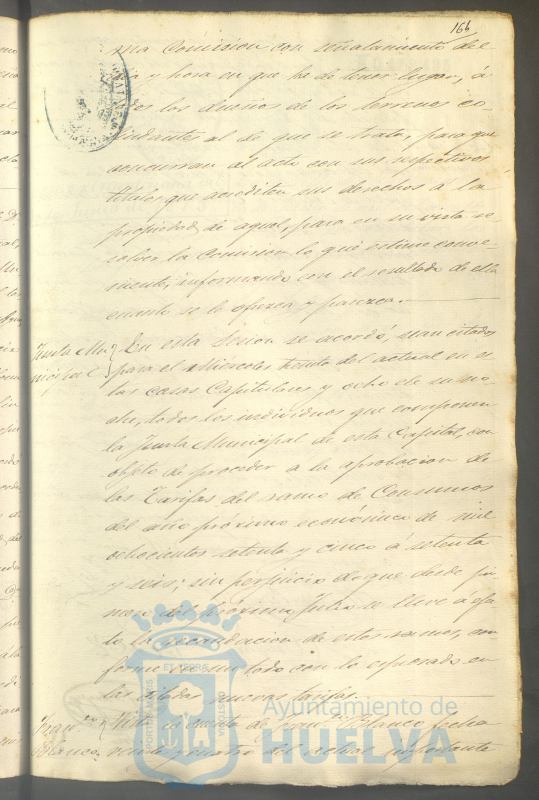 166
ma Comision con señalamiento de
y hora en que ha de tener lugar, á
los dueños de los terrenos co-
lindantes al de que se trata, para que
concurran al acto con sus respectivos
titulos que acrediten sus derechos á la
propiedad de aquel, para en su vista re-
solver la Comision lo que estime conve-
niente, informando con el resultado de ella
cuanto se le ofrezca y parezca.
Junta Mu-
nicipal
En esta Sesion se acordó, sean citados
para el Miercoles treinta del actual en es-
tas casas Capitulares y ocho de su no-
che, todos los individuos que componen
la Junta Municipal de esta Capital, con
objeto de proceder a la aprobacion de
las Tarifas del ramo de Consumos
del año próximo económico de mil
ochocientos setenta y cinco á setenta
y seis; sin perjuicio de que desde pri-
mero del próximo Julio se lleve a efec-
to la recaudacion de estos ramos, con-
forme en un todo con lo espresado en
las citadas nuevas tarifas.
Fran.co
Blanco
Vista la cuenta de Fran.co Blanco fecha
veinte y cuatro del actual importante
Ayuntamiento de
HUELVA